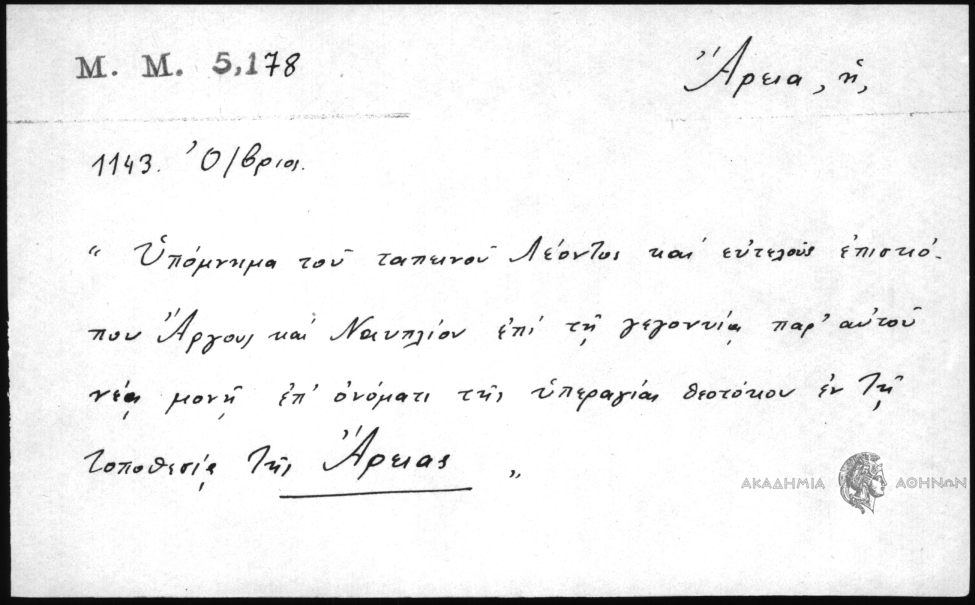 Μ. Μ. 5,178
Ἄρεια, ἡ,
1143. Ὀ/βριος.
“ Ὑπόμνημα τοῦ ταπεινοῦ Λέοντος καὶ εὐτελοῦς ἐπισκό-
που Ἄργους καὶ Ναυπλίου ἐπὶ τῇ γεγονυίᾳ παρ' αὐτοῦ
νέᾳ μονῇ ἐπ' ὀνόματι τῆς ὑπεραγίας θεοτόκου ἐν τῇ
τοποθεσίᾳ τῆς Ἄρειας „
ΑΚΑΔΗΜΙΑ ΑΘΗΝΩΝ